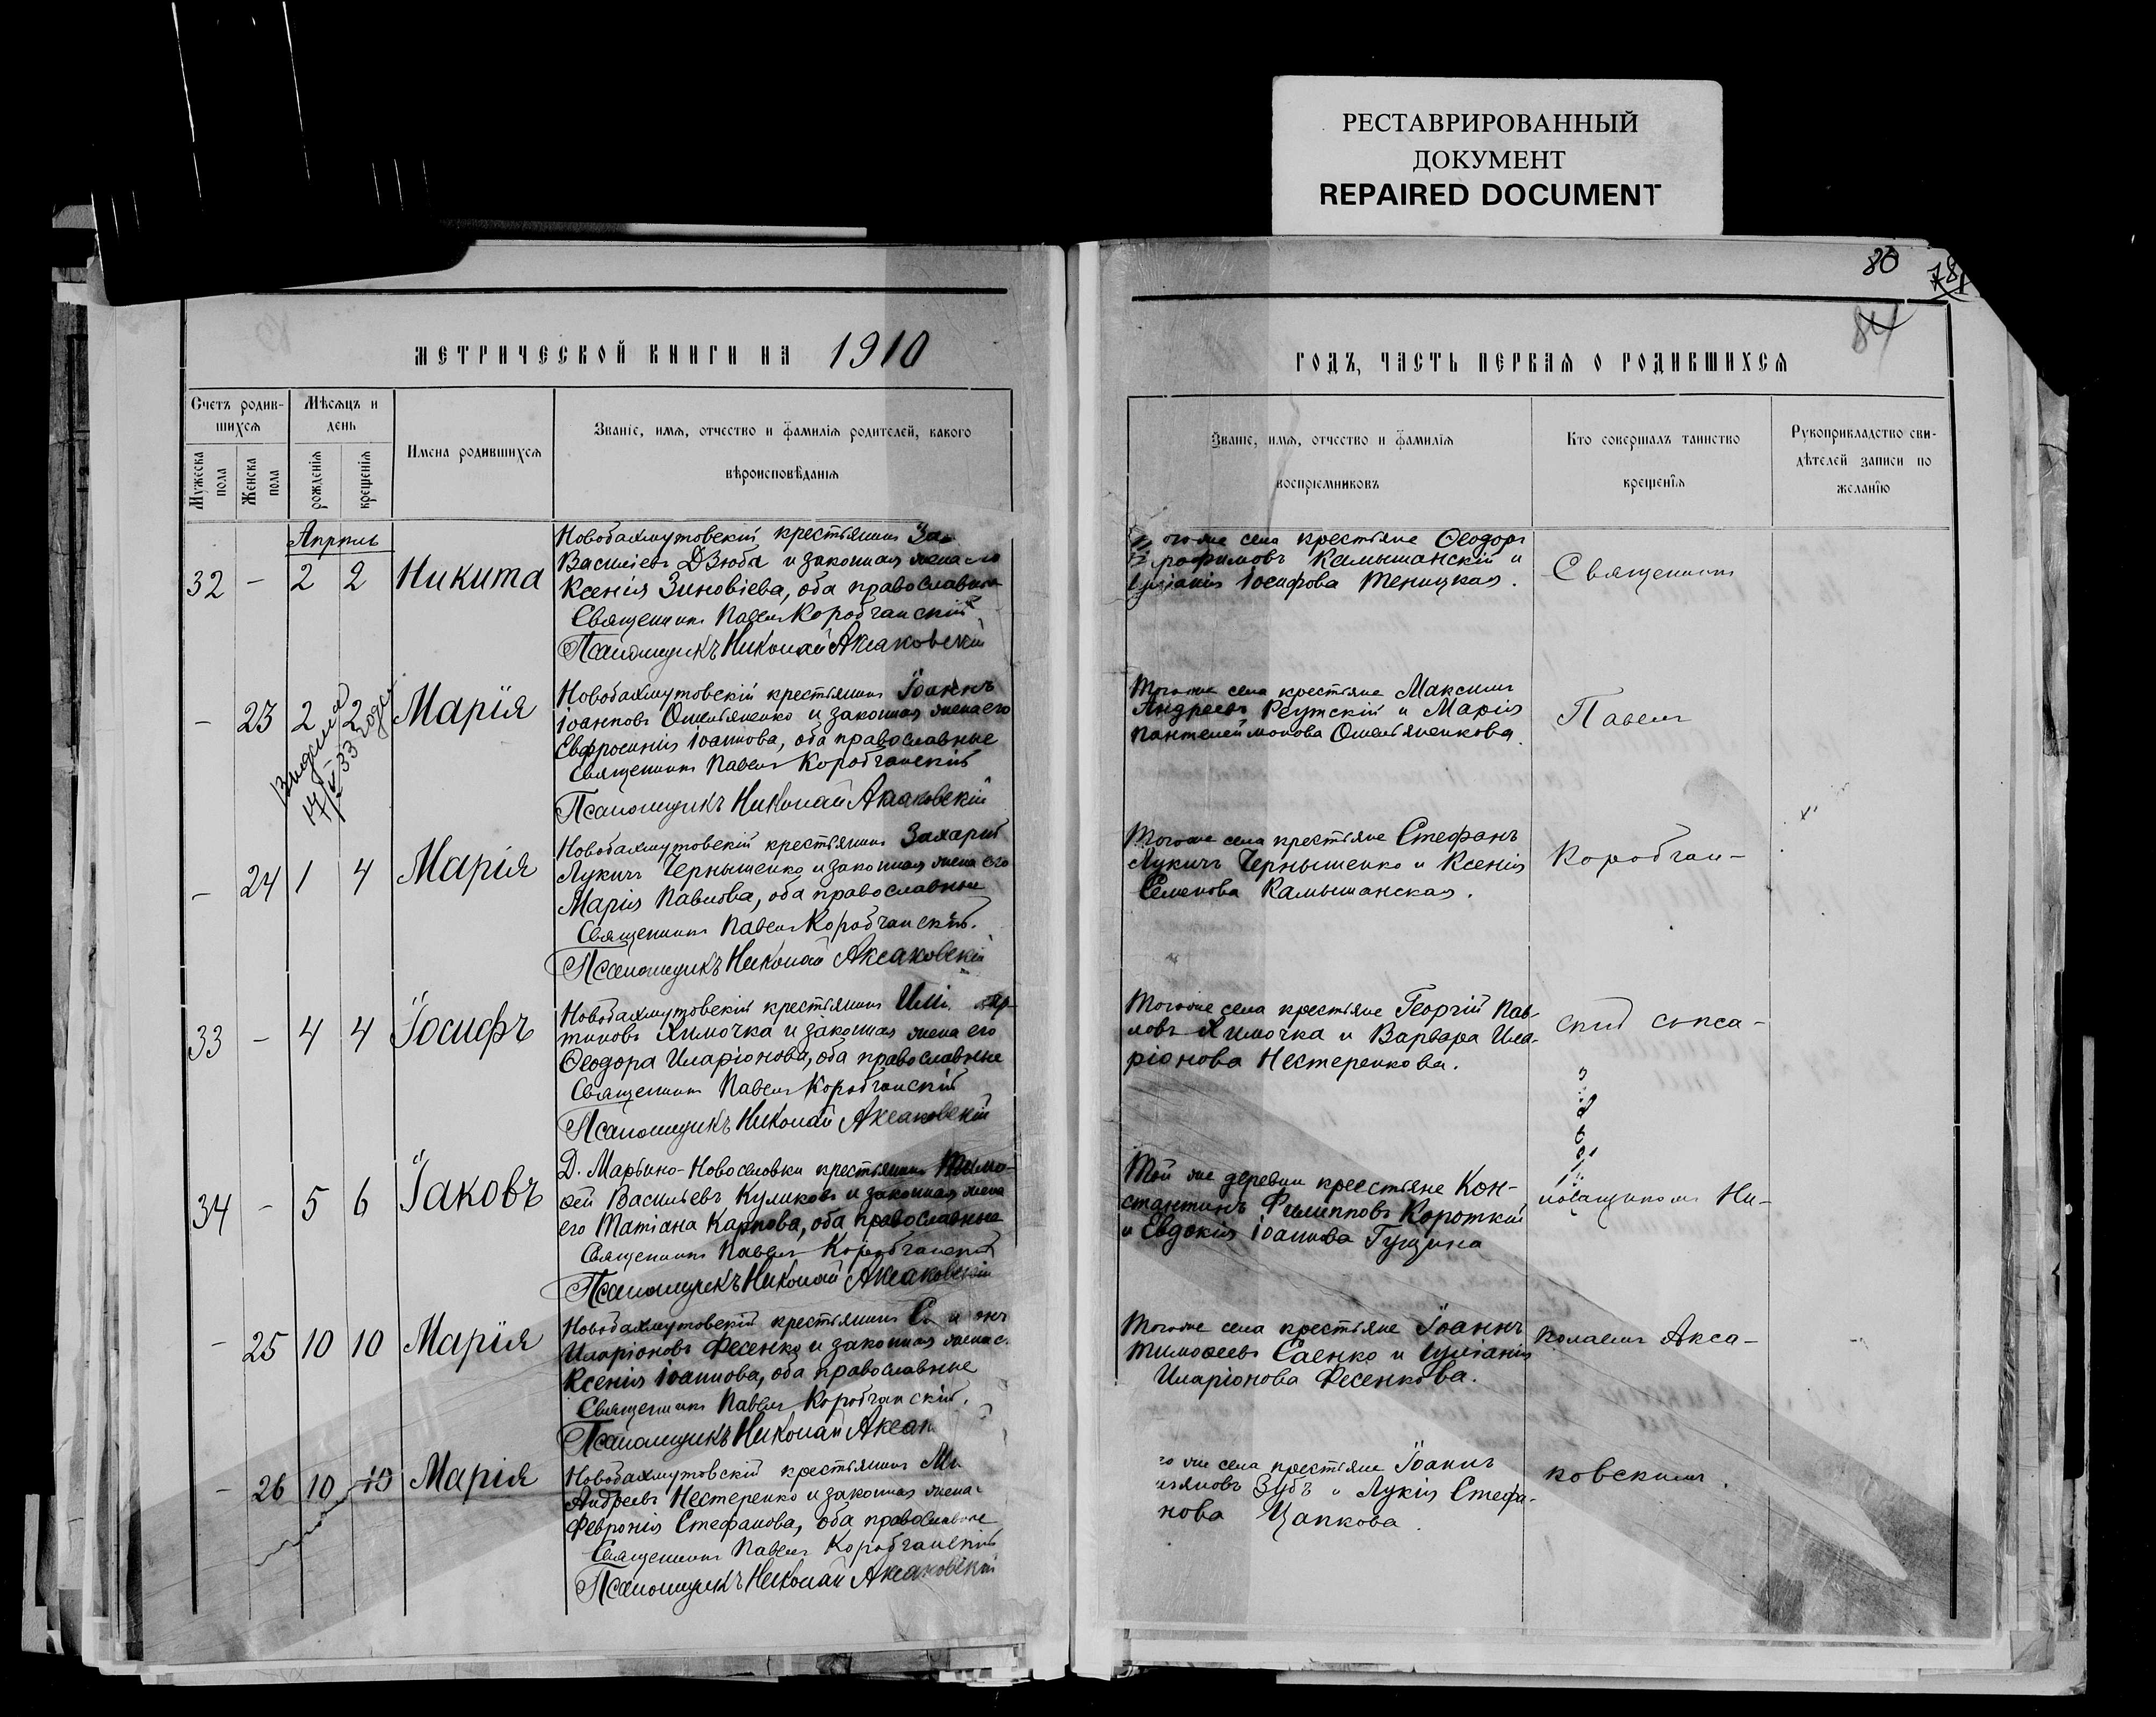 РЕСТАВРИРОВАННЫЙ
ДОКУМЕНТ
REPAIRED DOCUMENT
80
84
МЕТРИЧЕСКОЙ КНИГИ НА 1910
ГОДЪ, ЧАСТЬ ПЕРВАЯ О РОДИВШИХСЯ
Счетъ родив-
шихся
Мѣсяцъ и
день
Имена родившихся
Званіе, имя, отчество и фамилія родителей, какого
вѣроисповѣданія
Мужеска
пола
Женска
пола
рожденія
крещенія
Званіе, имя, отчество и фамилія
воспріемниковъ
Кто совершалъ таинство
крещенія
Рукоприкладство сви-
дѣтелей записи по
желанію
Апрѣль
32 - 2 2 Никита
Новобахмутовскій крестьянинъ
Василіевъ Дзюба и законная жена его
Ксенія Зиновіева, оба православные
Священникъ Павелъ Коробчанскій
Псаломщикъ Николай Аксаковскій
того же села крестьяне Ѳеодоръ
Камышанскій и
Іуліанія Іосифова Теницкая.
Священникъ
- 23 2 2 Марія
Выдана
33 года
Новобахмутовскій крестьянинъ Іоаннъ
Іоанновъ Омельяненко и законная жена его
Евфросинія Іоаннова, оба православные
Священникъ Павелъ Коробчанскій
Псаломщикъ Николай Аксаковскій
Того же села крестьяне Максимъ
Андреевъ Реутскій и Марія
Пантелеймонова Омельяненкова.
Павелъ
- 24 1 4 Марія
Новобахмутовскій крестьянинъ Захарій
Лукичъ Чернышенко и законная жена его
Марія Павлова, оба православные
Священникъ Павелъ Коробчанскій.
Псаломщикъ Николай Аксаковскій
Того же села крестьяне Стефанъ
Лукичъ Чернышенко и Ксенія
Семенова Камышанская.
Коробчан-
33 - 4 4 Іосифъ
Новобахмутовскій крестьянинъ
тиновъ Химочка и законная жена его
Ѳеодора Иларіонова, оба православные
Священникъ Павелъ Коробчанскій
Псаломщикъ Николай Аксаковскій
Того же села крестьяне Георгій Пав-
ловъ Химочка и Варвара Ила-
ріонова Нестеренкова.
скій съ пса-
34 - 5 6 Іаковъ
Д. Марьино-Новоселовки крестьянинъ Тимо-
ѳей Васильевъ Куликовъ и законная жена
его Татіана Карпова, оба православные
Священникъ Павелъ Коробчанскій
Псаломщикъ Николай Аксаковскій
Той же деревни крестьяне Кон-
стантинъ Филипповъ Короткій
и Евдокія Іоаннова Гущина
ломщикомъ Ни-
- 25 10 10 Марія
Новобахмутовскій крестьянинъ
Иларіоновъ Фесенко и законная жена
Ксенія Іоаннова, оба православные
Священникъ Павелъ Коробчанскій.
Псаломщикъ Николай Аксак
Того же села крестьяне Іоаннъ
Тимоѳеевъ Саенко и Іуліанія
Иларіонова Фесенкова.
колаемъ Акса-
- 26 10 10 Марія
Новобахмутовскій крестьянинъ
Андреевъ Нестеренко и законная жена
Февронія Стефанова, оба православные
Священникъ Павелъ Коробчанскій
Псаломщикъ Николай Аксаковскій
го же села крестьяне Іоаннъ
Зубъ и Лукія Стефа-
нова Цапкова.
ковскимъ.